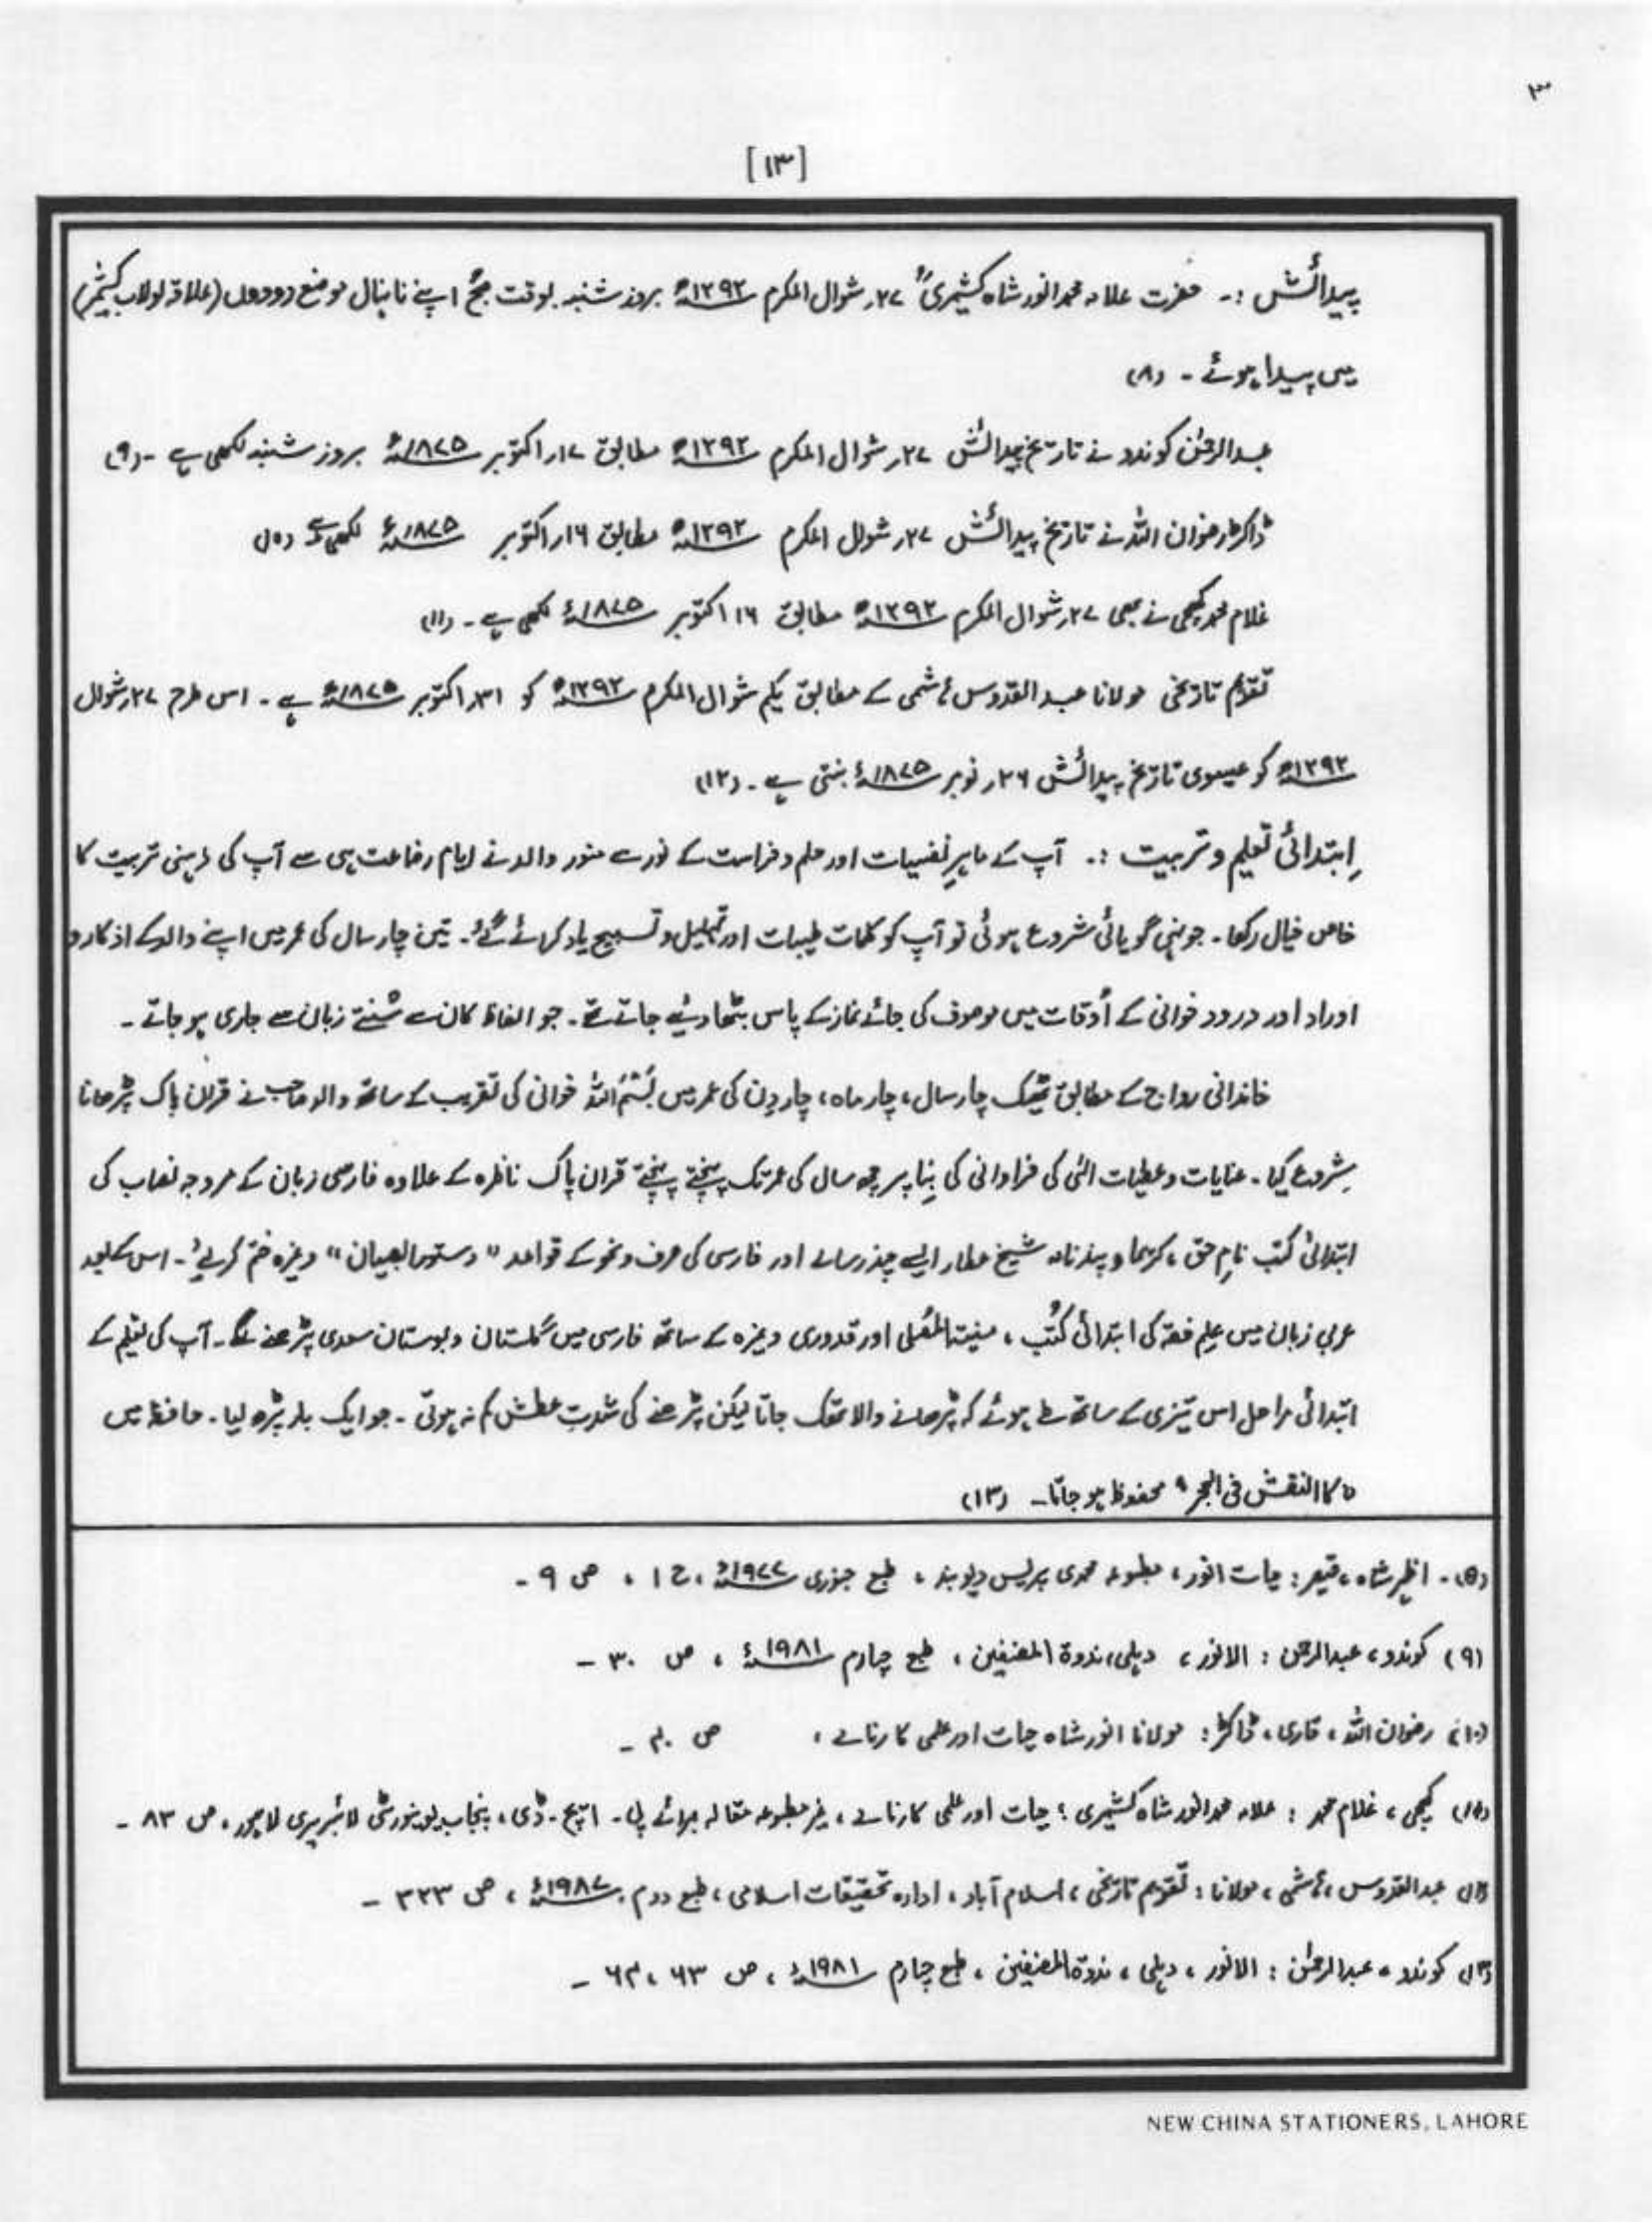 ۳
[۱۳]
پیدائش :۔ حضرت علامہ محمد انور شاہ کشمیریؒ ۲۷؍ شوال المکرم ۱۲۹۲ھ بروز شنبہ بوقت صبح اپنے نانہال موضع دودواں (علاقہ لولاب کشمیر)
میں پیدا ہوئے ۔ (۸)
عبدالرحمٰن کوندو نے تاریخ پیدائش ۲۷؍ شوال المکرم ۱۲۹۲ھ مطابق ۱۷؍ اکتوبر ۱۸۷۵ء بروز شنبہ لکھی ہے ۔ (۹)
ڈاکٹر رضوان اللہ نے تاریخ پیدائش ۲۷؍ شوال المکرم ۱۲۹۲ھ مطابق ۱۶؍ اکتوبر ۱۸۷۵ء لکھی ہے (۱۰)
غلام محمد کیچی نے بھی ۲۷؍ شوال المکرم ۱۲۹۲ھ مطابق ۱۶ اکتوبر ۱۸۷۵ء لکھی ہے ۔ (۱۱)
تقویم تاریخی مولانا عبد القدوس ہاشمی کے مطابق یکم شوال المکرم ۱۲۹۲ھ کو ۳۱؍ اکتوبر ۱۸۷۵ء ہے ۔ اس طرح ۲۷؍ شوال
۱۲۹۲ھ کو عیسوی تاریخ پیدائش ۲۶؍ نومبر ۱۸۷۵ء بنتی ہے ۔ (۱۲)
اِبتدائی تعلیم و تربیت :۔ آپ کے ماہرِ نفسیات اور علم و فراست کے نور سے منور والد نے ایام رضاعت ہی سے آپ کی ذہنی تربیت کا
خاص خیال رکھا ۔ جونہی گویائی شروع ہوئی تو آپ کو کلمات طیبات اور تہلیل و تسبیح یاد کرائے گئے ۔ تین چار سال کی عمر میں اپنے والد کے اذکار و
اوراد اور درود خوانی کے اَوقات میں موصوف کی جائے نماز کے پاس بٹھا دئیے جاتے تھے ۔ جو الفاظ کان سے سُنتے زبان سے جاری ہو جاتے ۔
خاندانی رواج کے مطابق ٹھیک چار سال ، چار ماہ ، چار دِن کی عمر میں بِسْمِ اللہ خوانی کی تقریب کے ساتھ والد صاحب نے قرآن پاک پڑھانا
شروع کیا ۔ عنایات و عطیات الٰہی کی فراوانی کی بِنا پر چھ سال کی عمر تک پہنچتے پہنچتے قرآن پاک ناظرہ کے علاوہ فارسی زبان کے مروجہ نصاب کی
ابتدائی کتب نامِ حق ، کریما و پندنامہ شیخ عطار ایسے چند رسالے اور فارسی کی صرف و نحو کے قواعد " دستور الصبیان " وغیرہ ختم کر لیے ۔ اس کے بعد
عربی زبان میں علمِ فقہ کی ابتدائی کُتب ، منیتہ المُصلی اور قدوری وغیرہ کے ساتھ فارسی میں گلستان و بوستان سعدی پڑھنے لگے ۔ آپ کی تعلیم کے
ابتدائی مراحل اس تیزی کے ساتھ طے ہوئے کہ پڑھانے والا تھک جاتا لیکن پڑھنے کی شدتِ عطش کم نہ ہوتی ۔ جو ایک بار پڑھ لیا ۔ حافظہ میں
" کالنقش فی الحجر " محفوظ ہو جاتا ۔ (۱۳)
(۸) ۔ ازہر شاہ ، قیصر : حیات انور ، مطبوعہ محمدی پریس دیوبند ، طبع جنوری ۱۹۷۷ء ، ج ۱ ، ص ۹ ۔
(۹) کوندو ، عبدالرحمٰن : الانور ، دہلی ، ندوۃ المصنفین ، طبع چہارم ۱۹۸۱ء ، ص ۳۰ ۔
(۱۰) رضوان اللہ ، قاری ، ڈاکٹر : مولانا انور شاہ حیات اور علمی کارنامے ، ص ۴۰ ۔
(۱۱) کیچی ، غلام محمد : علامہ محمد انور شاہ کشمیری ؛ حیات اور علمی کارنامے ، غیر مطبوعہ مقالہ برائے پی ۔ ایچ ۔ ڈی ، پنجاب یونیورسٹی لائبریری لاہور ، ص ۸۳ ۔
(۱۲) عبدالقدوس ، ہاشمی ، مولانا : تقویم تاریخی ، اسلام آباد ، ادارہ تحقیقات اسلامی ، طبع دوم ۱۹۸۷ء ، ص ۳۲۳ ۔
(۱۳) کوندو ، عبدالرحمٰن : الانور ، دہلی ، ندوۃ المصنفین ، طبع چہارم ۱۹۸۱ء ، ص ۶۳ ، ۶۴ ۔
NEW CHINA STATIONERS, LAHORE